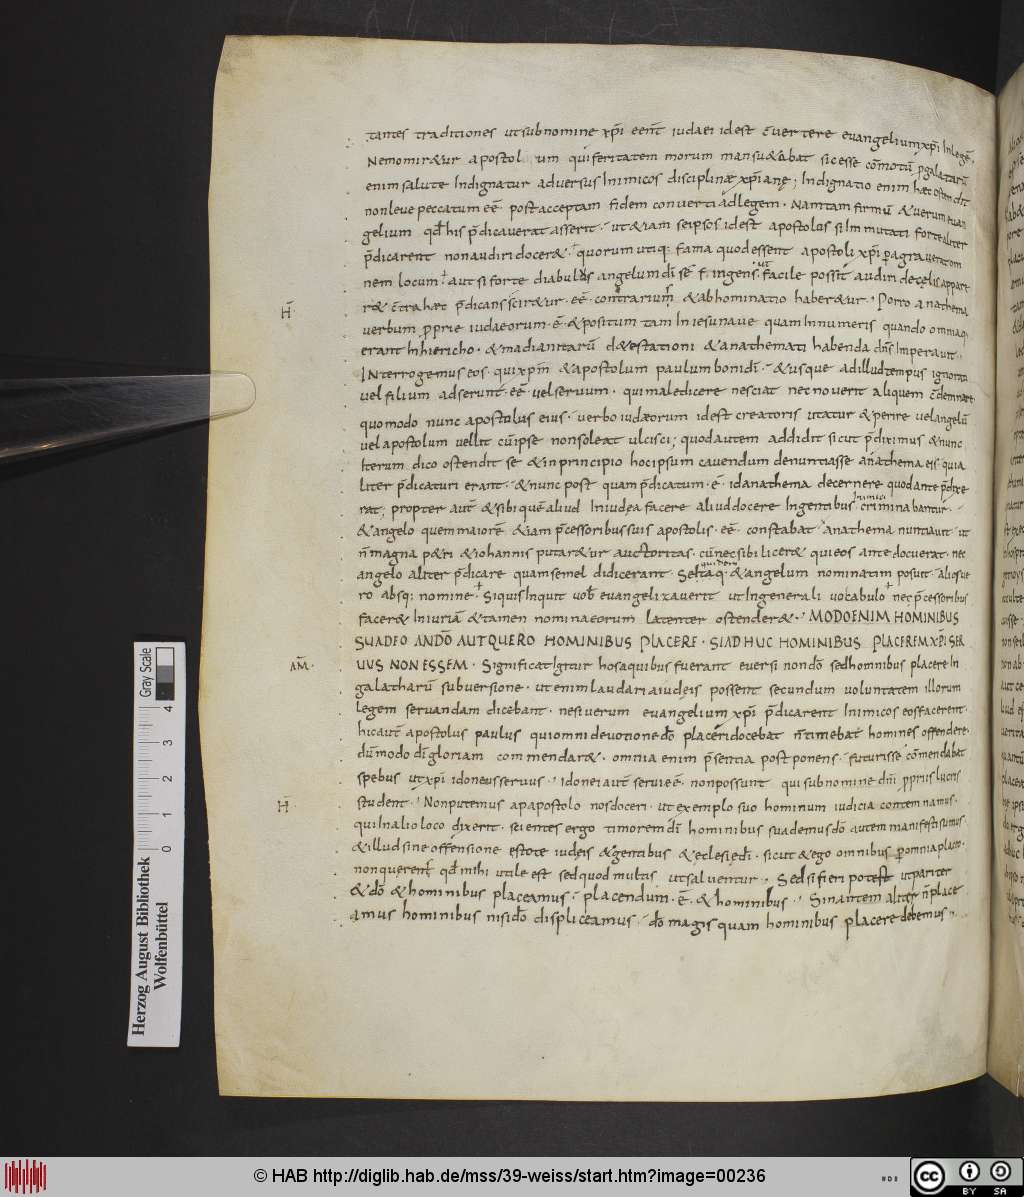 tantes traditiones ut sub nomine xp̄i eēnt iudaei idest c̄vertere evangelium xp̄i In legē
Nemo mir&ur apostol um qui feritatem morum mansu&abat sic esse cōmotū p̄ galatarū
enim salute Indignatur adversus Inimicos disciplinæ xp̄ianę; Indignatio enim hæc ostendit
non leve peccatum eē post acceptam fidem converti ad legem. Nam tam firmū & verum evan
gelium qd̄ his p̄dicaverat asserit. ut &iam se ipsos idest apostolus si Immutati forte aliter
p̄dicarent non audiri docer&. quorum utiq; fama quod essent apostoli xp̄i p̄agraverat om
nem locum. aut si forte diabulus angelum dī sē fingens ut facile possit audiri de cęlis appare
r& c̄tra hæc p̄dicans scir&ur eē contrarium & abhominatio haber&ur. Porro anathema
H̄
verbum p̄prie iudaeorum ē & positum tam In iesu nave quam In numeris quando omnia q;
erant In hiericho & madianitarū d&estationi & anathemati habenda dn̄s Imperavit.
INterrogemus eos qui xp̄m & apostolum paulum boni dī & usque ad illud tempus ignorati
vel filium adserunt eē vel servum. qui maledicere nesciat nec noverit aliquem c̄demnare
quomodo nunc apostolus eius verbo iudæorum idest creatoris utatur & perire vel angelū
vel apostolum vellit cū ipse non soleat ulcisci; quod autem addidit sicut p̄diximus & nunc
Iterum dico ostendit se & in principio hoc ipsum cavendum denuntiasse anathema eis qui a
liter p̄dicaturi erant. & nunc post quam p̄dicatum ē id anathema decernere quod ante p̄dixe
rat; propter aut̄ & sibi quē aliud In iudęa facere aliud docere In gentibus Inimici criminabantur.
& angelo quem maiorē & iam p̄cessoribus suis apostolis eē constabat anathema nuntiavit ut
n̄ magna p&ri & iohannis putar&ur auctoritas. cū nec sibi licer& qui eos ante docuerat nec
angelo aliter p̄dicare quam semel didicerant. Se itaq; quidem & angelum nominatim posuit. alios ve
ro absq; nomine. Siquis Inquit vob̄ evangelizaverit ut In generali vocabulo nec p̄cessoribus
facer& Iniuriā & tamen nomina eorum latenter ostender&. MODO ENIM HOMINIBUS
SUADEO AN DŌ AUT QUERO HOMINIBUS PLACERE. SI ADHUC HOMINIBUS PLACEREM XP̄I SER
AM̄.
UUS NON ESSEM. Significat Igitur hos a quibus fuerant eversi non dō sed hominibus placere In
galatharū subversione. ut enim laudari a iudęis possent secundum voluntatem illorum
legem servandam dicebant. ne si verum evangelium xp̄i p̄dicarent Inimicos eos facerent.
hic aut̄ apostolus paulus qui omni devotione dō placeri docebat n̄ timebat homines offendere.
dū modo dī gloriam commendar&. omnia enim p̄sentia postponens futuris se cōmendabat
spebus ut xp̄i idoneus servus. Idonei aut̄ servi eē non possunt qui sub nomine dn̄i p̄priis lucris
H̄.
student. Non putemus ap apostolo nos doceri. ut exemplo suo hominum iudicia contemnamus.
qui In alio loco dixerit. scientes ergo timorem dī hominibus suademus dō autem manifesti sumus.
& illud sine offensione estote iudęis & gentibus & eclesię dī. sicut & ego omnibus p̄ omnia placeo.
non querens qd̄ mihi utile est sed quod multis ut salventur. Sed si fieri potest ut pariter
& dō & hominibus placeamus. placendum ē & hominibus. Sin autem aliter n̄ place
amus hominibus nisi dō displiceamus. dō magis quam hominibus placere debemus.
Gray Scale
0 1 2 3 4
Herzog August Bibliothek
Wolfenbüttel
© HAB http://diglib.hab.de/mss/39-weiss/start.htm?image=00236
cc BY SA